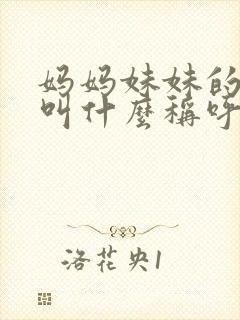 妈妈妹妹的
叫什麼稱呼
洛花央1